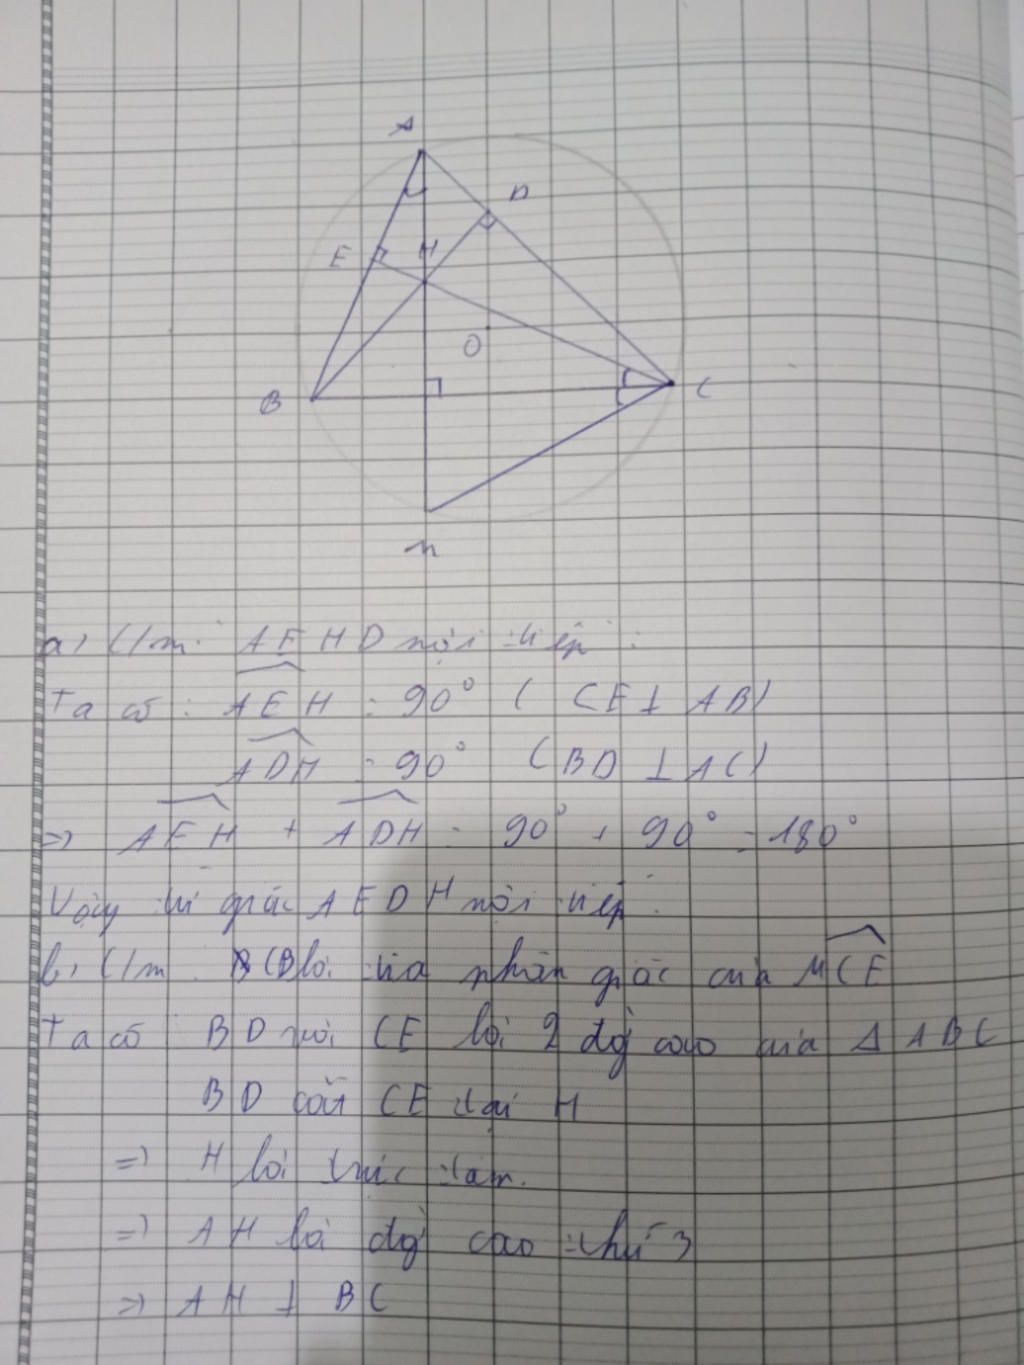 A
D
E
H
O
B
C
M
a, C/m: AEHD nội tiếp:
Ta có: AEH = 90° ( CE ⊥ AB)
ADH = 90° (BD ⊥ AC)
=> AEH + ADH = 90° + 90° = 180°
Vậy tứ giác AEDH nội tiếp.
b, C/m CB là tia phân giác của MCE
Ta có BD và CE là 2 đg cao của Δ ABC
BD cắt CE tại H
=> H là trực tâm.
=> AH là đg cao thứ 3
=> AH ⊥ BC